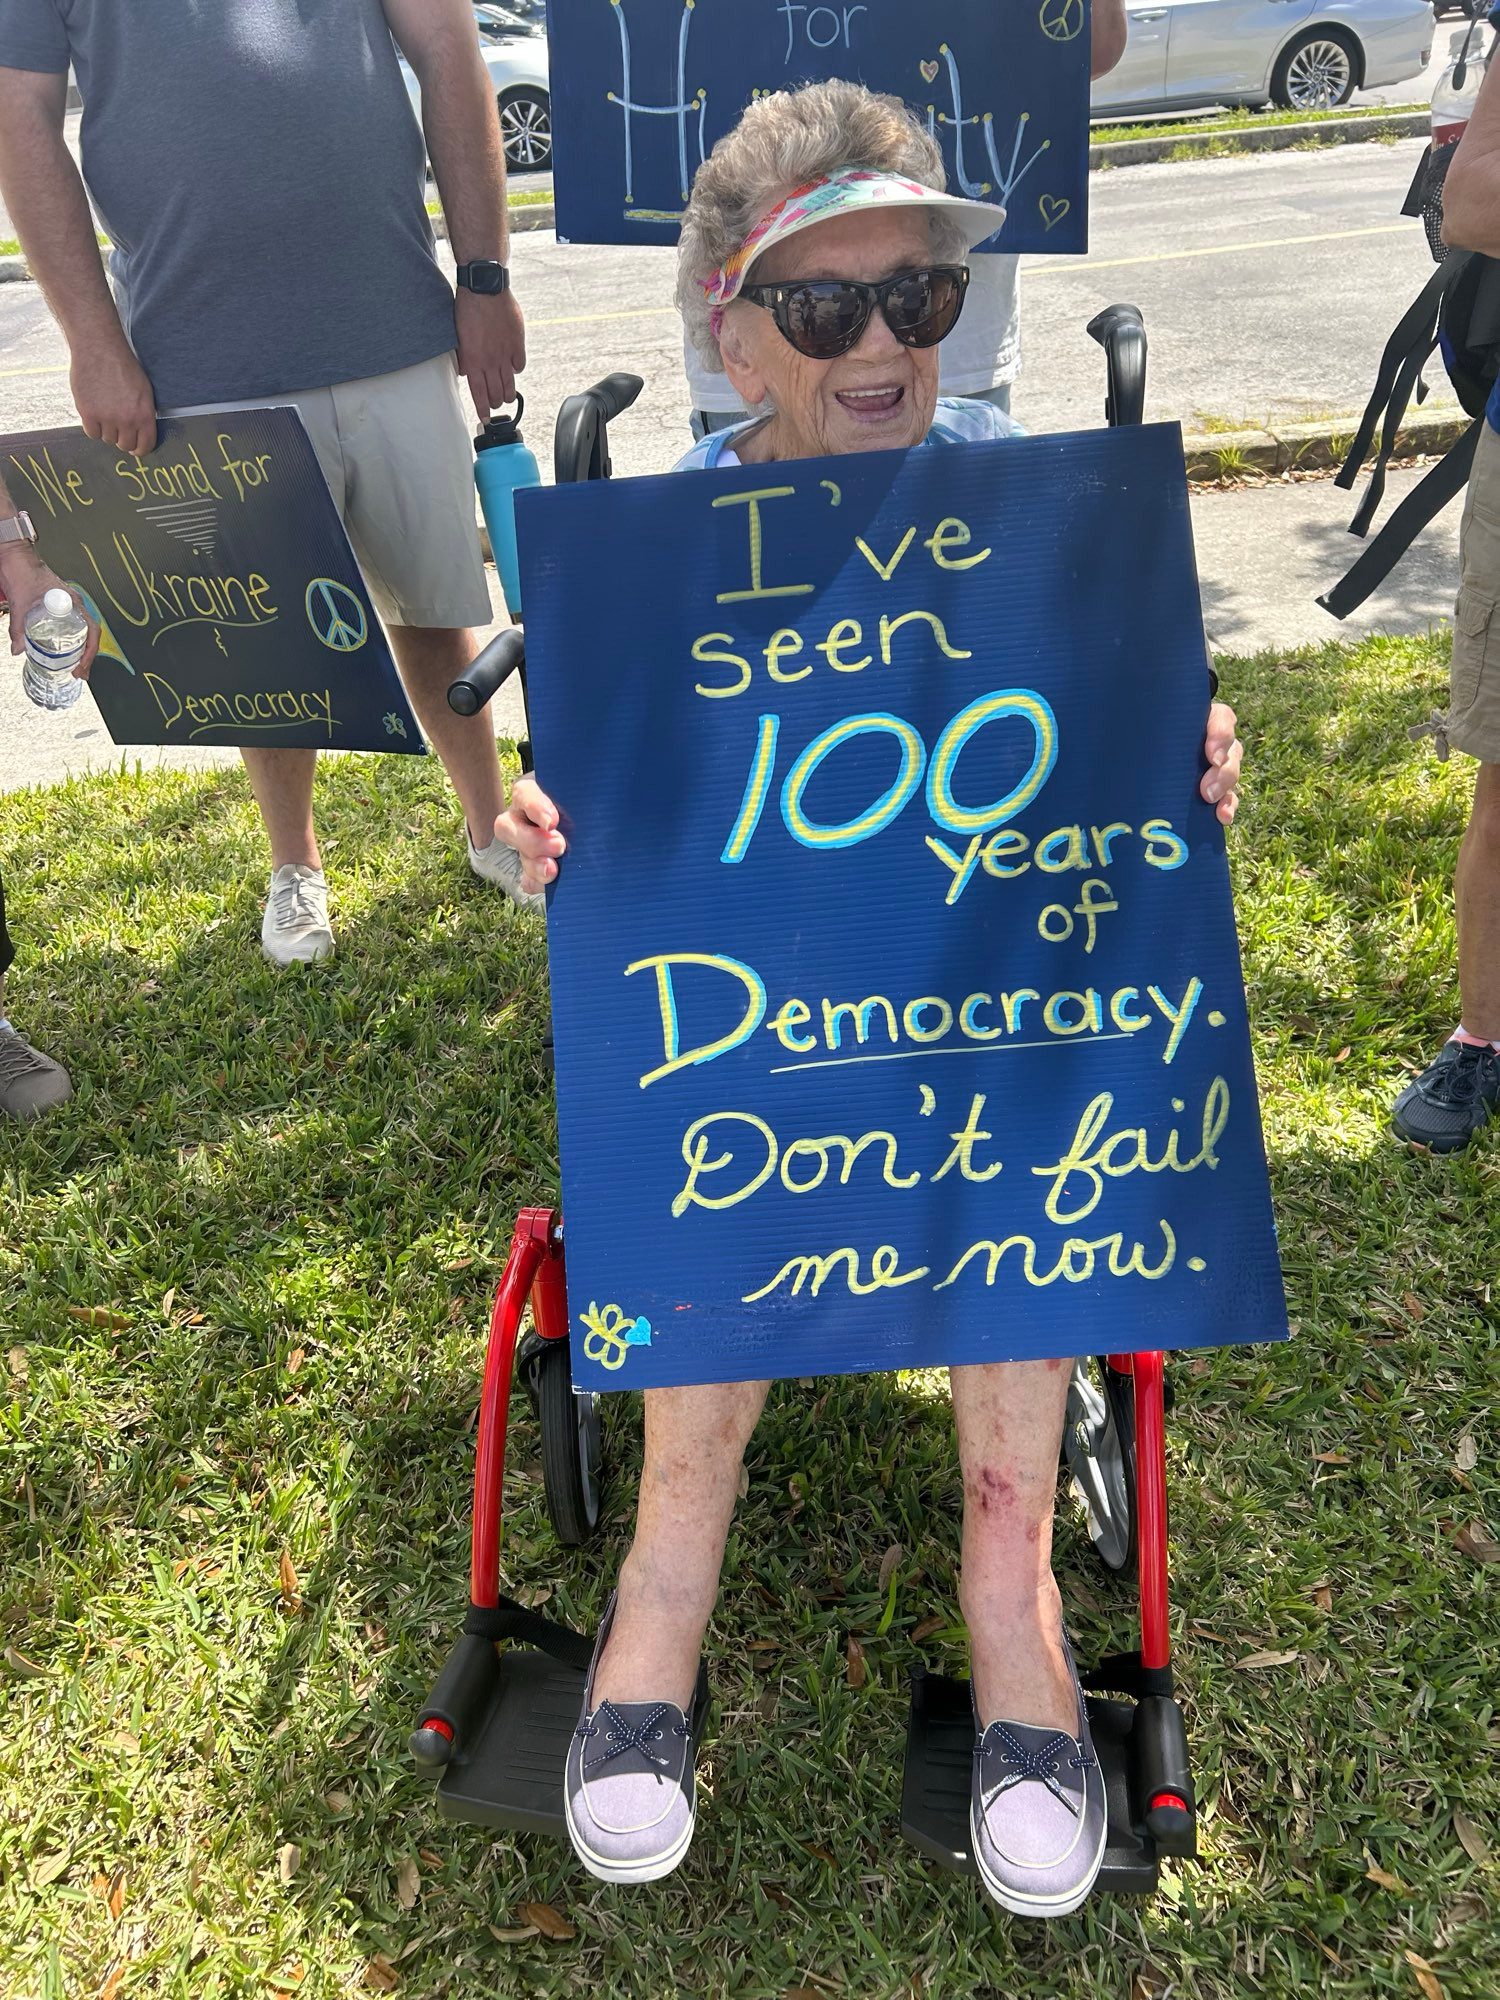 for
We stand for
Ukraine
&
Democracy
I've
seen
100
years
of
Democracy.
Don't fail
me now.